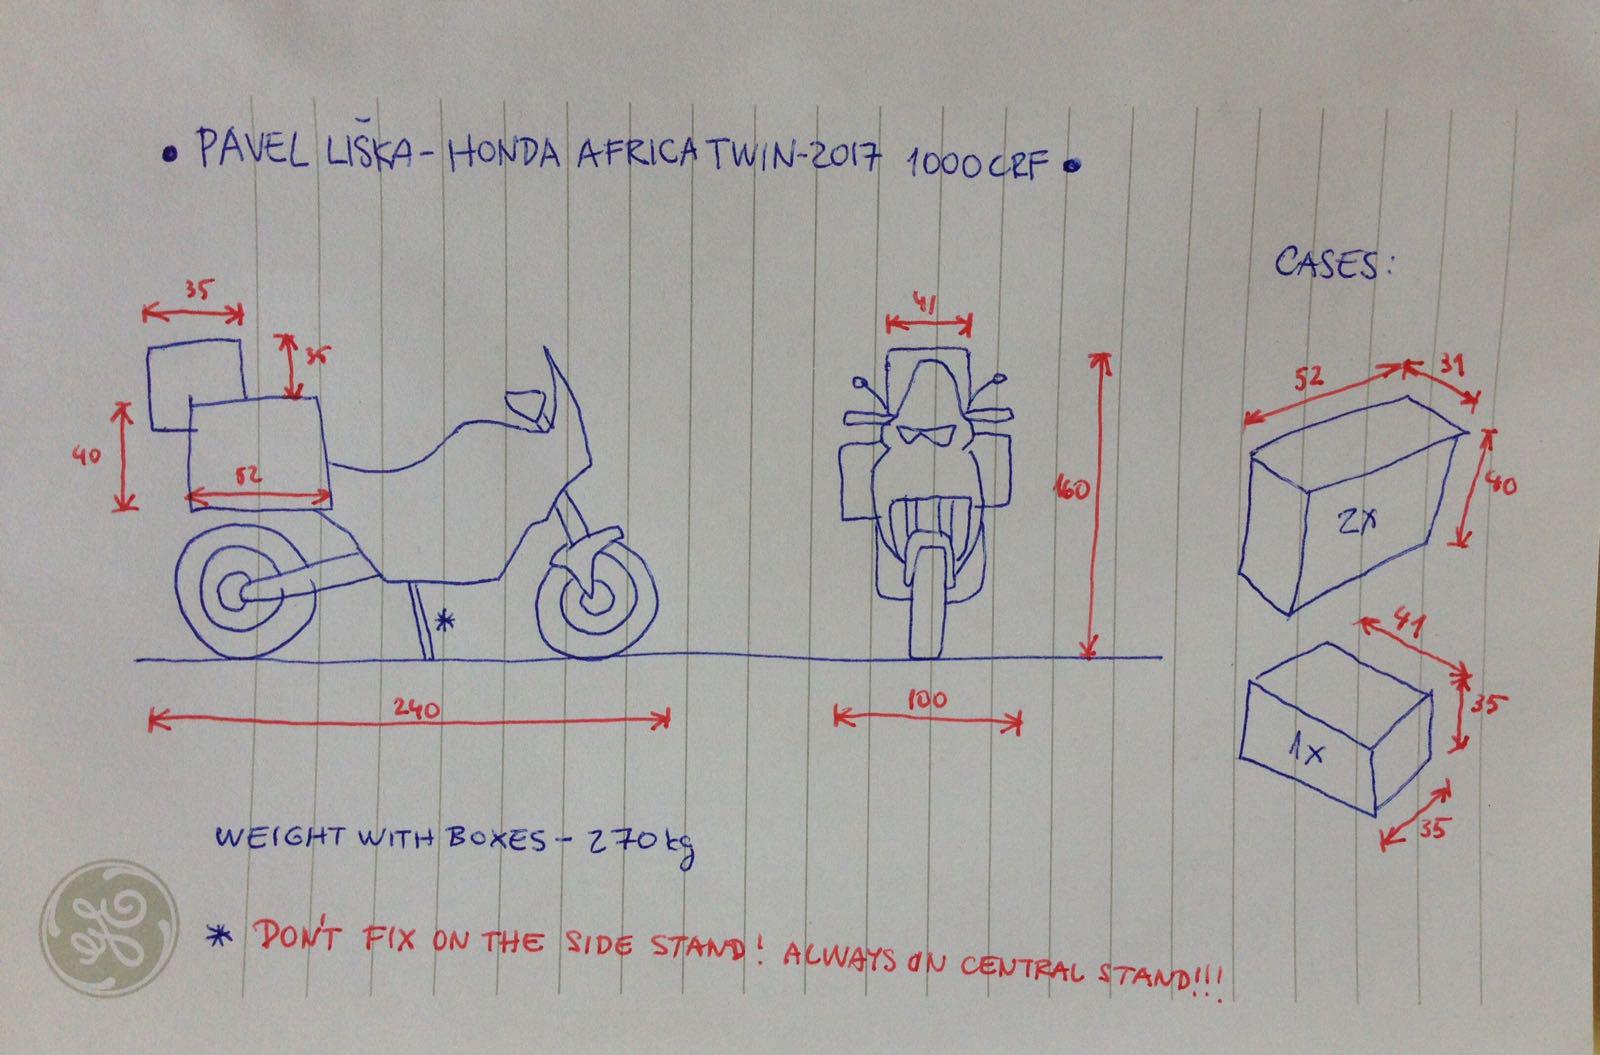 • PAVEL LIŠKA - HONDA AFRICA TWIN-2017 1000CRF •
CASES:
35
35
40
52
240
41
160
100
52
31
40
2X
41
35
35
1X
WEIGHT WITH BOXES - 270kg
* DON'T FIX ON THE SIDE STAND! ALWAYS ON CENTRAL STAND!!!
*
GE